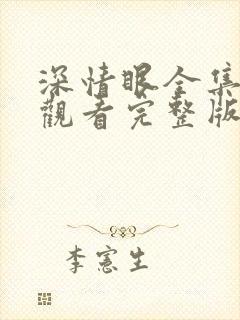 深情眼全集
觀看完整版
李憲生